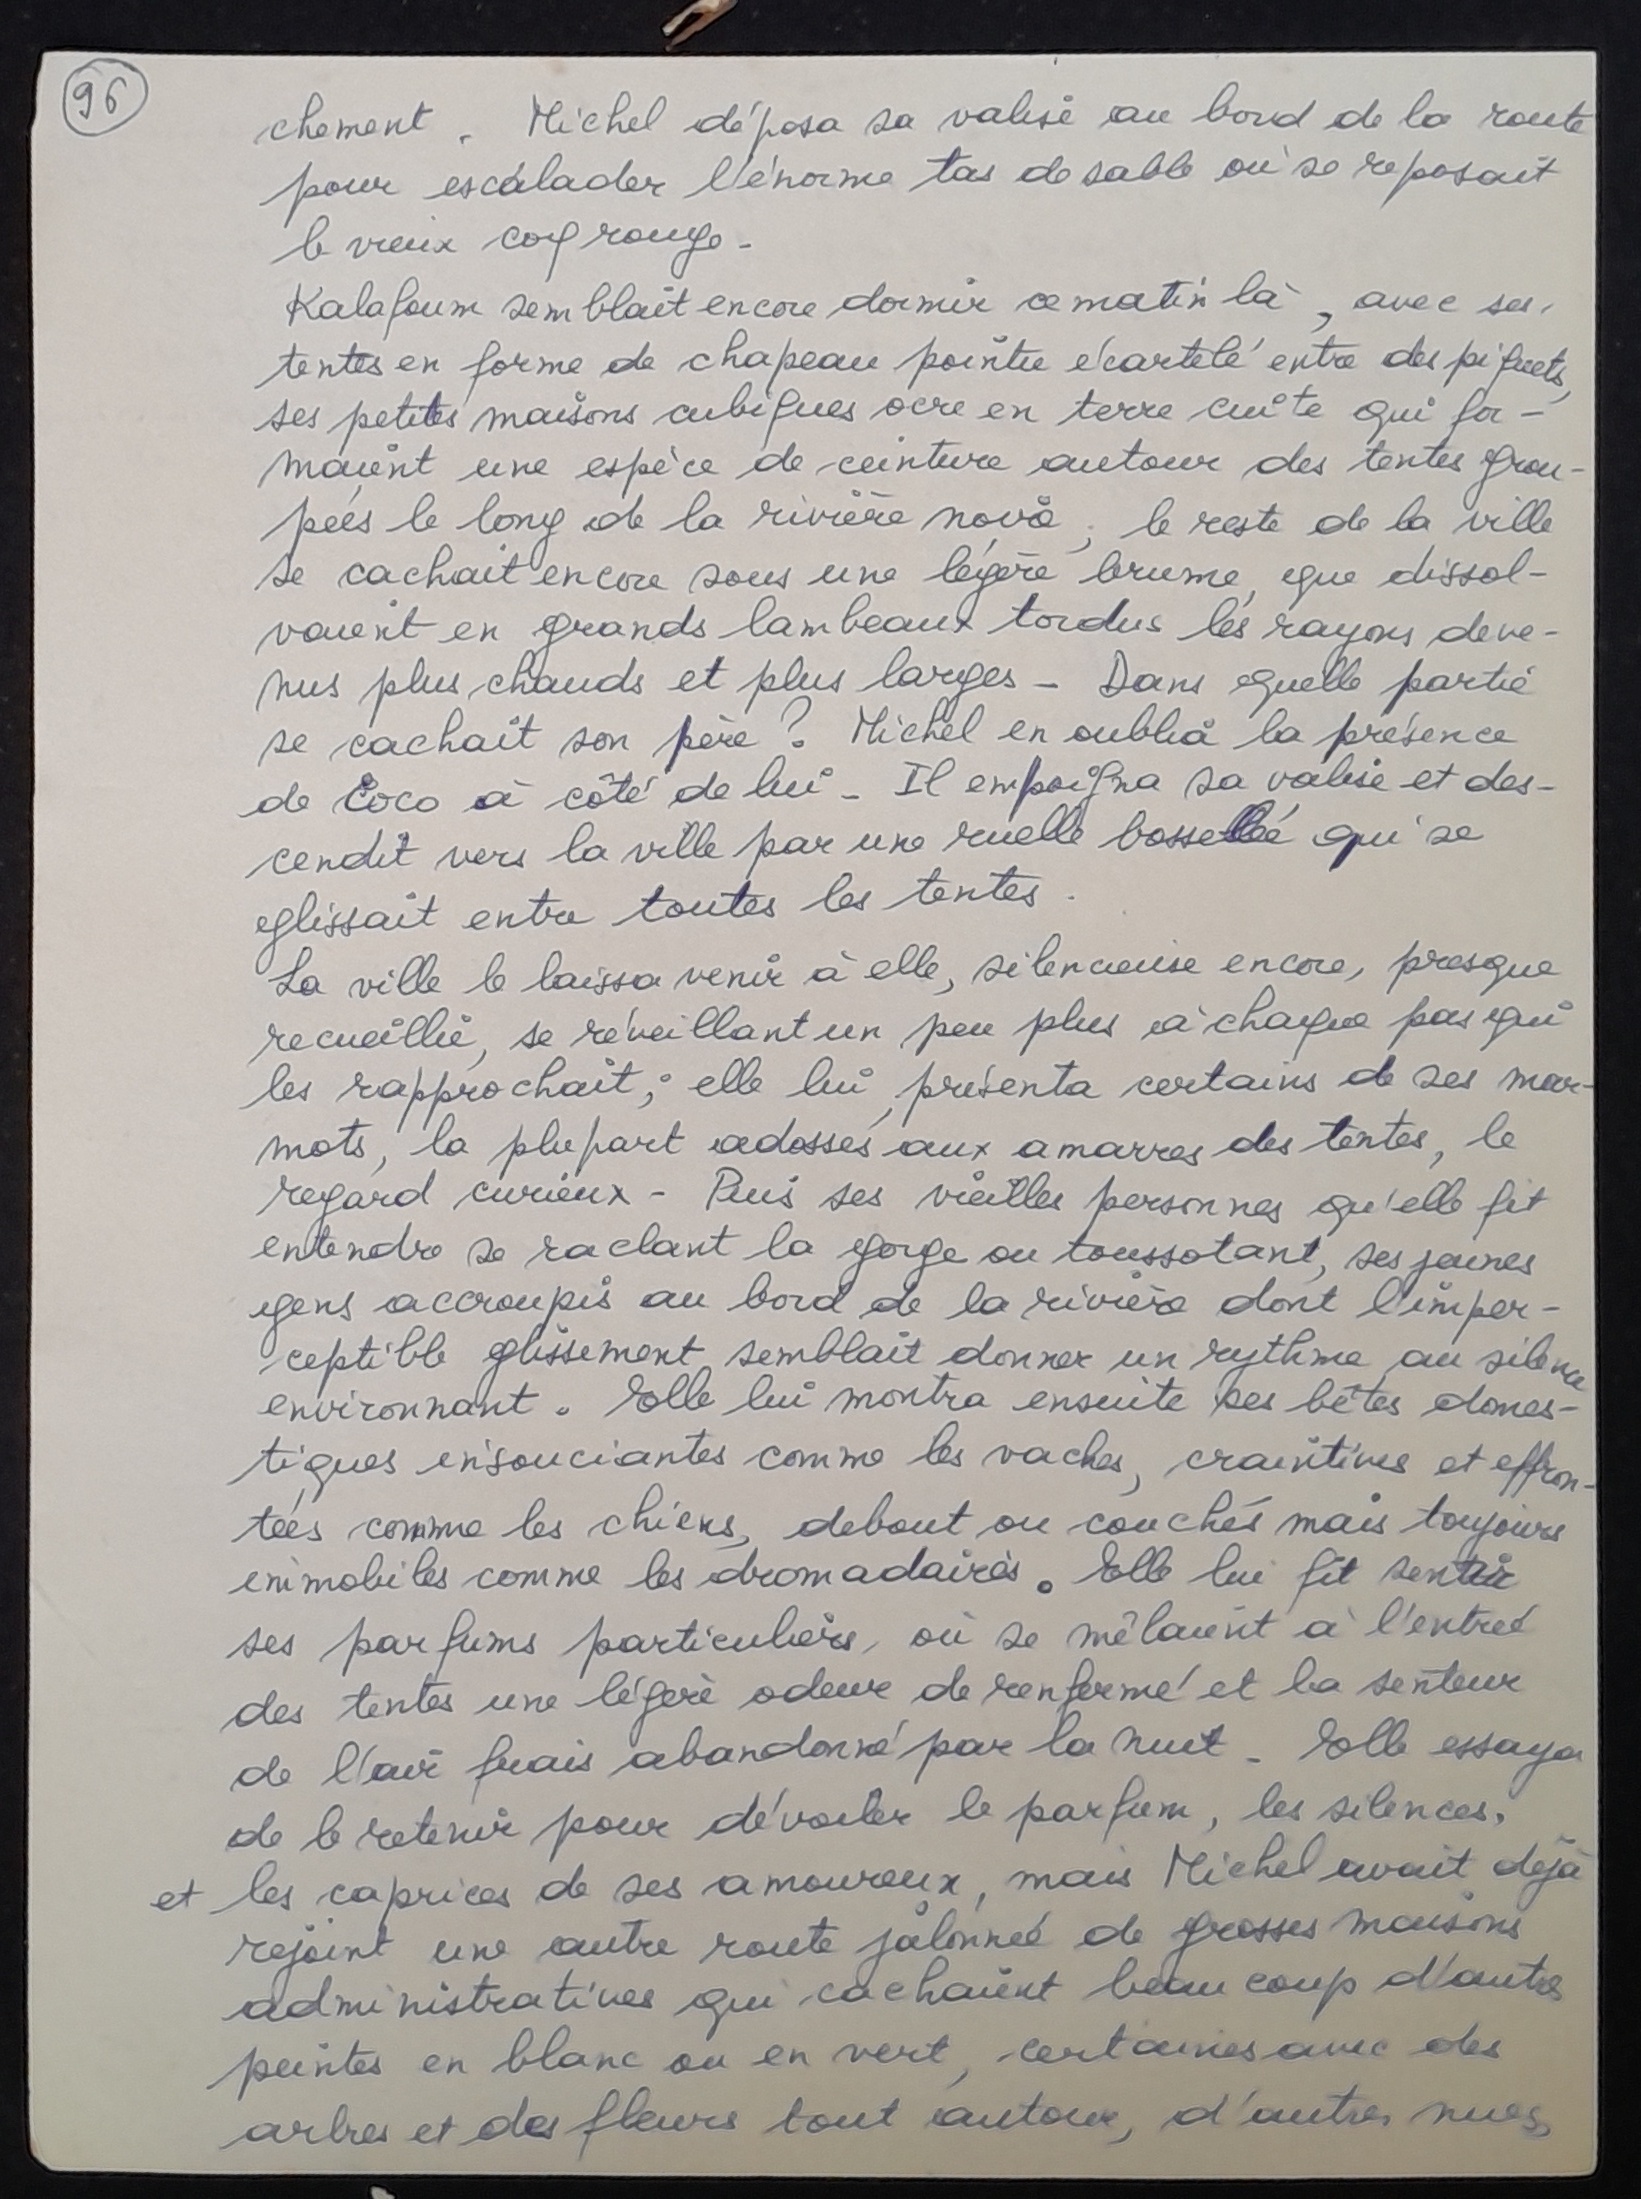 96
chement. Michel déposa sa valise au bord de la route
pour escalader l'énorme tas de sable où se reposait
le vieux coq rouge -
Kalafoum semblait encore dormir ce matin là, avec ses
tentes en forme de chapeau pointu écartelé entre des piquets,
ses petites maisons cubiques ocre en terre cuite qui for-
maient une espèce de ceinture autour des tentes grou-
pées le long de la rivière nova; le reste de la ville
se cachait encore sous une légère brume, que dissol-
vaient en grands lambeaux tordus les rayons deve-
nus plus chauds et plus larges - Dans quelle partie
se cachait son père? Michel en oublia la présence
de Coco à côté de lui - Il empoigna sa valise et des-
cendit vers la ville par une ruelle bosselée qui se
glissait entre toutes les tentes.
La ville le laissa venir à elle, silencieuse encore, presque
recueillie, se réveillant un peu plus à chaque pas qui
les rapprochait; elle lui présenta certains de ses mar-
mots, la plupart adossés aux amarres des tentes, le
regard curieux - Puis ses vieilles personnes qu'elle fit
entendre se raclant la gorge ou toussotant, ses jeunes
gens accroupis au bord de la rivière dont l'imper-
ceptible glissement semblait donner un rythme au silence
environnant. Elle lui montra ensuite ses bêtes domes-
tiques insouciantes comme les vaches, craintives et effron-
tées comme les chiens, debout ou couchés mais toujours
immobiles comme les dromadaires. Elle lui fit sentir
ses parfums particuliers, où se mêlaient à l'entrée
des tentes une légère odeur de renfermé et la senteur
de l'air frais abandonné par la nuit - Elle essaya
de le retenir pour dévoiler le parfum, les silences,
et les caprices de ses amoureux, mais Michel avait déjà
rejoint une autre route jalonnée de grosses maisons
administratives qui cachaient beaucoup d'autres
peintes en blanc ou en vert, certaines avec des
arbres et des fleurs tout autour, d'autres nues,